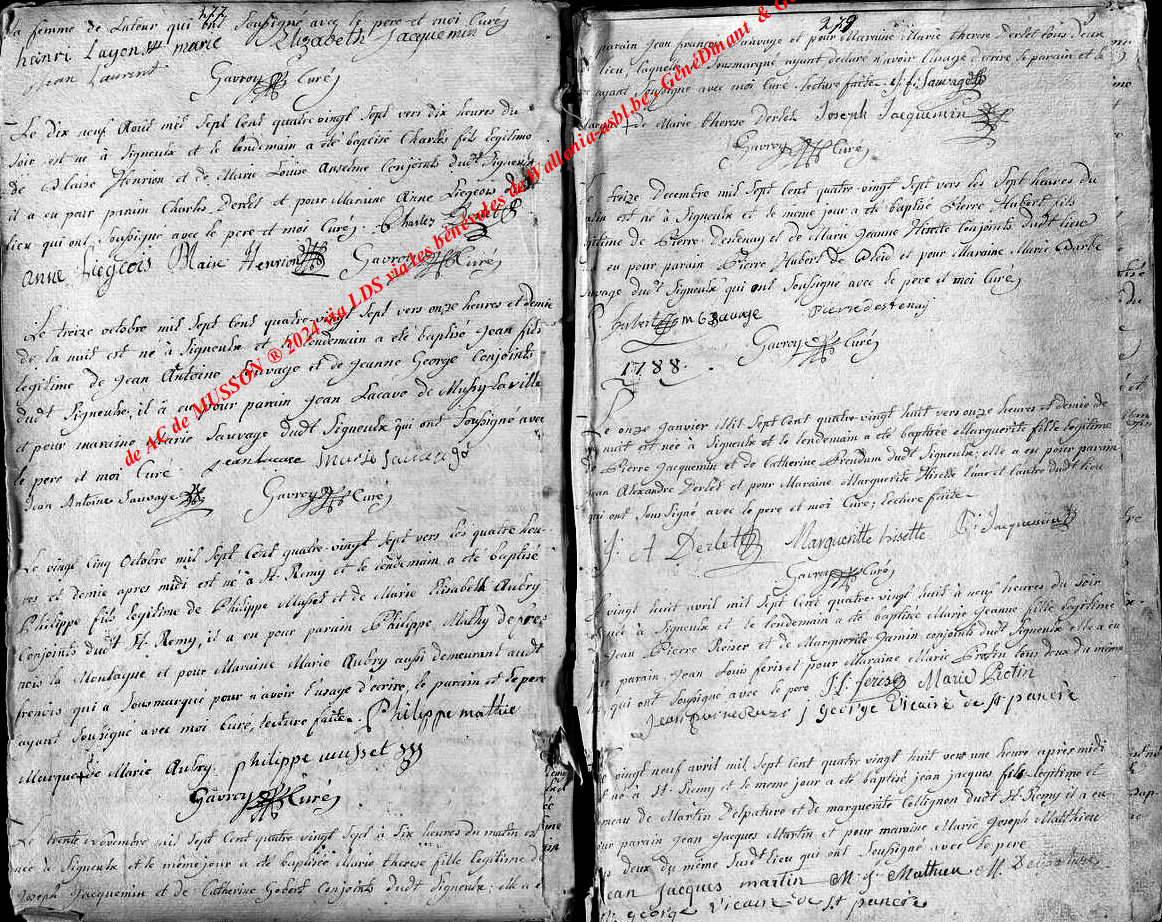 277
la femme de Latour qui ont Soussigné avec le pere et moi Curé
henri Layon marie Elizabeth Jacquemin
Jean Laurent
Gavroy Curé
Le dix neuf Aoust mil Sept Cent quatre vingt Sept vers dix heures du
Soir est né à Signeulx et le lendemain a été baptisé Charles fils legitime
de Blaise Henrion et de Marie Louise Anselme Conjoints dudt Signeulx
il a eu pour parain Charles Derlet et pour Maraine Anne Liegeois
lieu qui ont Soussigné avec le pere et moi Curé. Charles
anne Liegeois Blaise Henrion Gavroy Curé
Le treize octobre mil Sept Cent quatre vingt Sept vers onze heures et demie
de la nuit est né à Signeulx et le lendemain a été baptisé Jean fils
legitime de Jean Antoine Sauvage et de Jeanne George Conjoints
dudt Signeulx, il à eu pour parain Jean Lacave de Mussy-la-ville
et pour maraine Marie Sauvage dudt Signeulx qui ont Soussigné avec
le pere et moi Curé jean lacave marie sauvage
Jean Antoine Sauvage Gavroy Curé
Le vingt Cinq Octobre mil Sept Cent quatre-vingt Sept vers les quatre heu-
res et demie apres midi est né à St. Remy et le lendemain a été baptisé
Philippe fils legitime de Philippe Musset et de Marie Elisabeth Aubry
Conjoints dudt St. Remy, il a eu pour parain Philippe Mathy de fres-
nois la Montagne et pour Maraine Marie Aubry aussi demeurant audt
frenois qui a Sousmarquée pour n'avoir l'usage d'écrire, le parain et le pere
ayant Soussigné avec moi Curé, lecture faite. Philippe mathie
Marque + de Marie Aubry. philippe musset
Gavroy Curé
Le trente novembre mil Sept Cent quatre vingt Sept à Six heures du matin est
née à Signeulx et le même jour a été baptisée Marie therese fille legitime de
Joseph Jacquemin et de Catherine Gobert Conjoints dudt Signeulx; elle a e
279
parain Jean françois Sauvage et pour Maraine Marie therese Derlet tous deux
lieu, laquelle Sousmarqué ayant declaré n'avoir l'usage d'écrire le parain et le
ayant Soussigné avec moi Curé. lecture faite. J. f. Sauvage
+ de Marie therese Derlet Joseph Jacquemin
Gavroy Curé
treize Decembre mil Sept Cent quatre vingt Sept vers les Sept heures du
est né à Signeulx et le même jour a été baptisé Pierre Hubert fils
legitime de Pierre Destenay et de Marie Jeanne Hisette Conjoints dudt lieu
eu pour parain Pierre Hubert de et pour Maraine Marie Barbe
Sauvage dudt Signeulx qui ont Soussigné avec le pere et moi Curé
hubert m b Sauvage Pierre destenay
Gavroy Curé
1788.
Le onze Janvier Mil Sept Cent quatre vingt huit vers onze heures et demie de
nuit est née à Signeulx et le lendemain a été baptisée Marguerite fille legitime
de Pierre Jacquemin et de Catherine dudt Signeulx; elle a eu pour parain
Jean Alexandre Derlet et pour Maraine Marguerite Hisette l'une et l'autre dudt lieu
qui ont Sous Signé avec le pere et moi Curé; lecture faite.
J. A Derlet Margueritte hisette P. Jacquemin
Gavroy Curé
vingt huit avril mil Sept Cent quatre vingt huit à neuf heures du soir
née à Signeulx et le lendemain a été baptisée Marie Jeanne fille legitime
Jean Pierre Reiser et de Marguerite Jamin conjoints dudt Signeulx elle a eu
parain Jean Louis feriset pour Maraine Marie Protin tous deux du même
qui ont Soussigné avec le pere J. l. feriset Marie Protin
j george Vicaire de St pancré
vingt neuf avril mil Sept Cent quatre vingt huit vers une heure après midi
né à St. Remy et le même jour a été baptisé jean jacques fils legitime et
de Martin Delpature et de marguerite Collignon dudt St. Remy il a eu
parain jean Jacques Martin et pour maraine Marie Joseph Matthieu
deux du même Sudt lieu qui ont Soussigné avec le pere
jean jacques martin M. J. Mathieu M.
george Vicaire de St pancré
de AC de MUSSON ® 2024 via LDS via les bénévoles de Wallonia-asbl.be - GénéDinant &